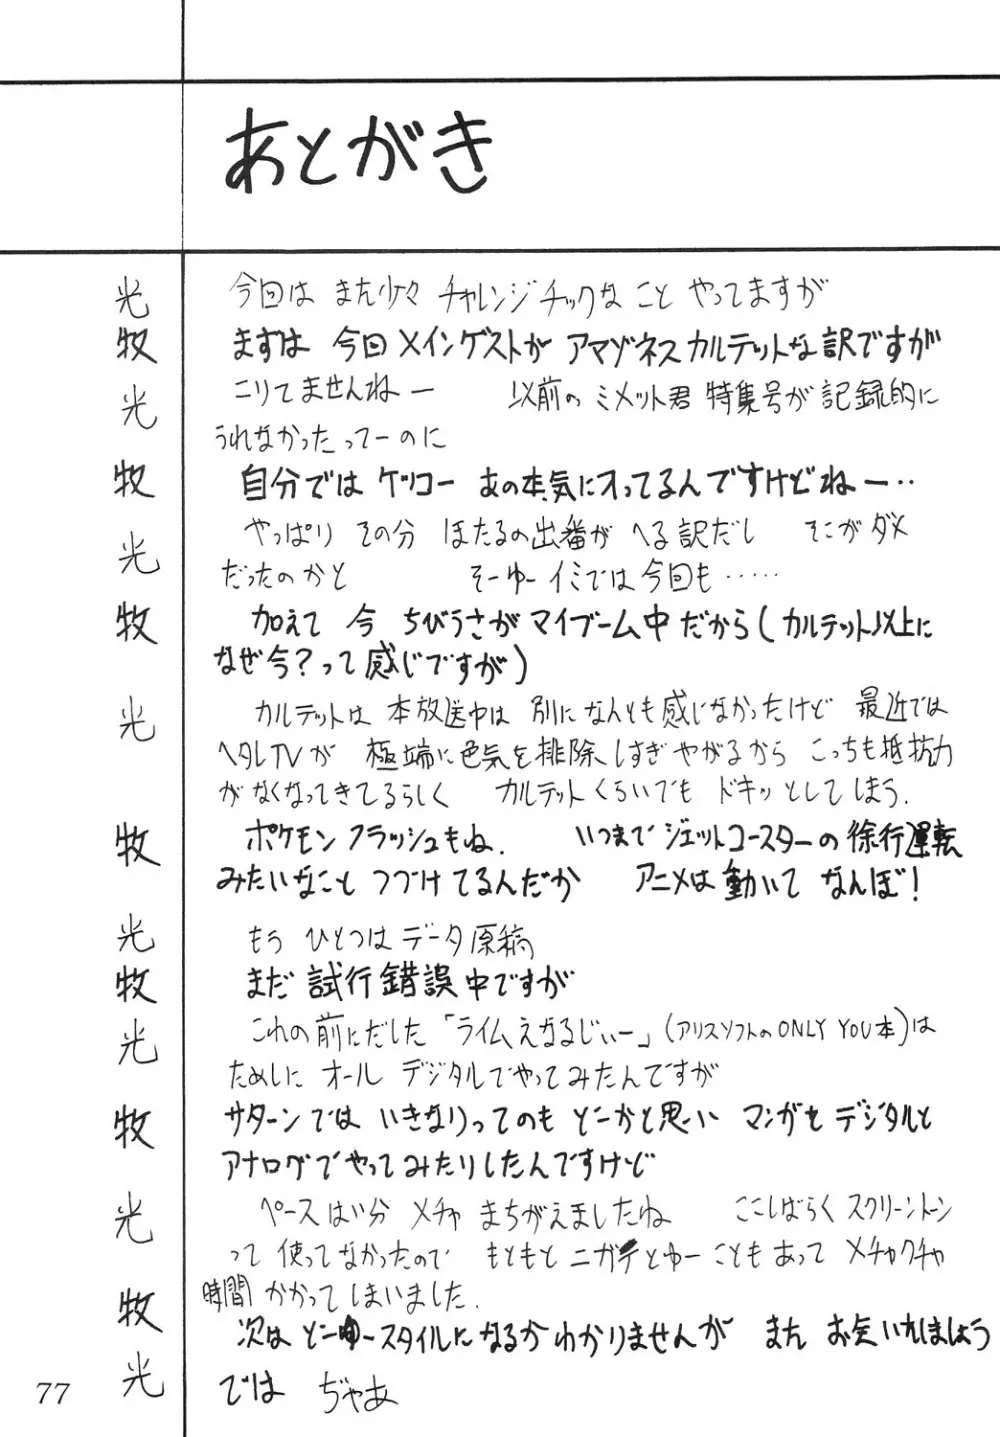 あとがき
光 今回は また少々 チャレンジチックな こと やってますが
牧 まずは 今回 メインゲストが アマゾネスカルテットな訳ですが
光 こりてませんねー 以前の ミメット君 特集号が 記録的に
うれなかったってーのに
牧 自分では ケッコー あの本気に入ってるんですけどねー‥
光 やっぱり その分 ほたるの出番が へる訳だし そこがダメ
だったのかと そーゆーイミでは今回も‥‥‥
牧 加えて 今 ちびうさが マイブーム中だから(カルテット以上に
なぜ今?って感じですが)
光 カルテットは 本放送中は 別になんとも感じなかったけど 最近では
ヘタレTVが 極端に色気を排除しすぎやがるから こっちも抵抗力
がなくなってきてるらしく カルテットくらいでも ドキッとしてしまう.
牧 ポケモンフラッシュもね. いつまでジェットコースターの徐行運転
みたいなこと つづけてるんだか アニメは 動いて なんぼ!
光 もう ひとつは データ原稿
牧 まだ 試行錯誤中ですが
光 これの前にだした「ライムえなるじぃー」(アリスソフトのONLY YOU本)は
ためしに オール デジタルでやってみたんですが
牧 サターンでは いきなりってのも どーかと思い マンガを デジタルと
アナログでやってみたりしたんですけど
光 ペースはい分 メチャ まちがえましたね ここしばらく スクリーントーン
って 使ってなかったので もともと ニガテとゆーこともあって メチャクチャ
時間 かかってしまいました.
牧 次は どーゆースタイルになるかわかりませんが また お会いしましょう
光 では ぢゃあ
77